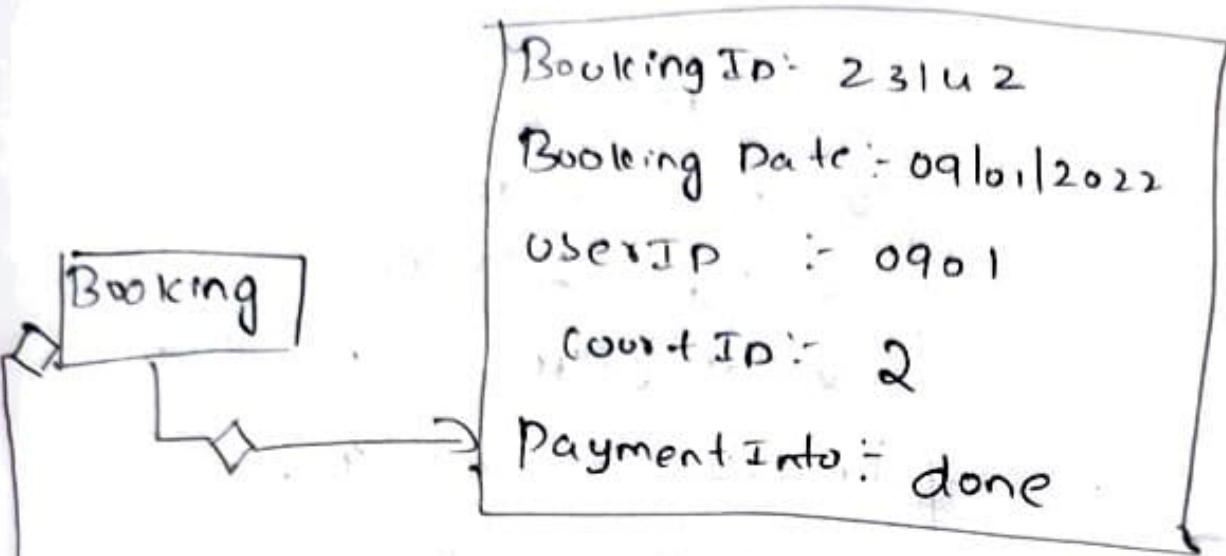 Booking ID:- 23142
Booking Date:- 09/01/2022
UserID :- 0901
Booking
Court ID:- 2
Payment Info:- done